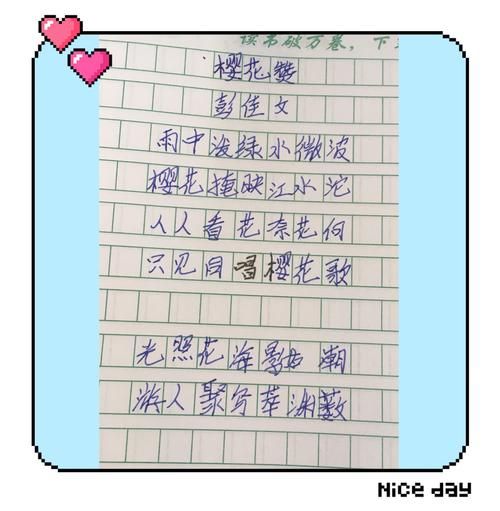 读书破万卷，下
樱花赞
彭佳文
雨中泼绿水微波
樱花掩映江水沱
人人看花奈花何
只见自唱樱花歌
光照花海影如潮
游人聚写萃渊薮
Nice day